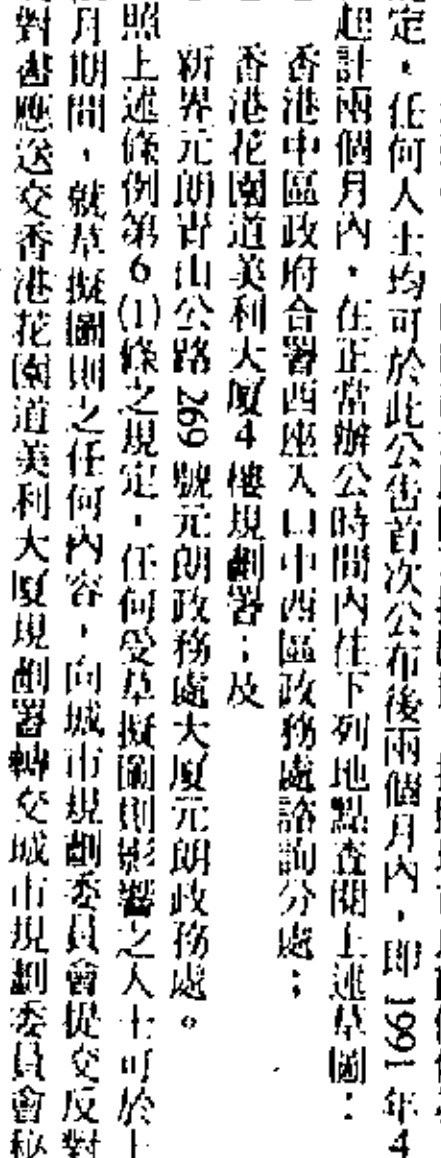 定，任何人士均可於此公告首次公布後兩個月內，即 1991 年 4
起計兩個月內，在正常辦公時間內往下列地點查閱上述草圖：
香港中區政府合署西座入口中西區政務處諮詢分處；
香港花園道美利大廈 4 樓規劃署；及
新界元朗青山公路 269 號元朗政務處大廈元朗政務處。
照上述條例第 6 (1) 條之規定，任何受草擬圖則影響之人士可於上
月期間，就草擬圖則之任何內容，向城市規劃委員會提交反對
對書應送交香港花園道美利大廈規劃署轉交城市規劃委員會秘